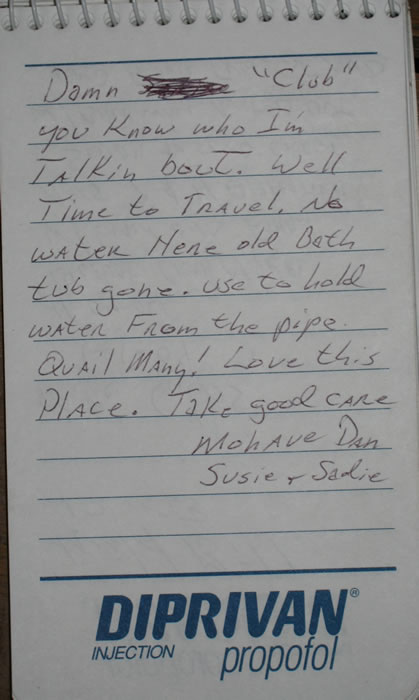 Damn "Club"
you Know who I'm
Talkin bout. Well
Time to Travel, No
water Here old Bath
tub gone. use to hold
water From the pipe.
Quail Many! Love this
Place. Take good care
Mohave Dan
Susie + Sadie
DIPRIVAN®
INJECTION propofol